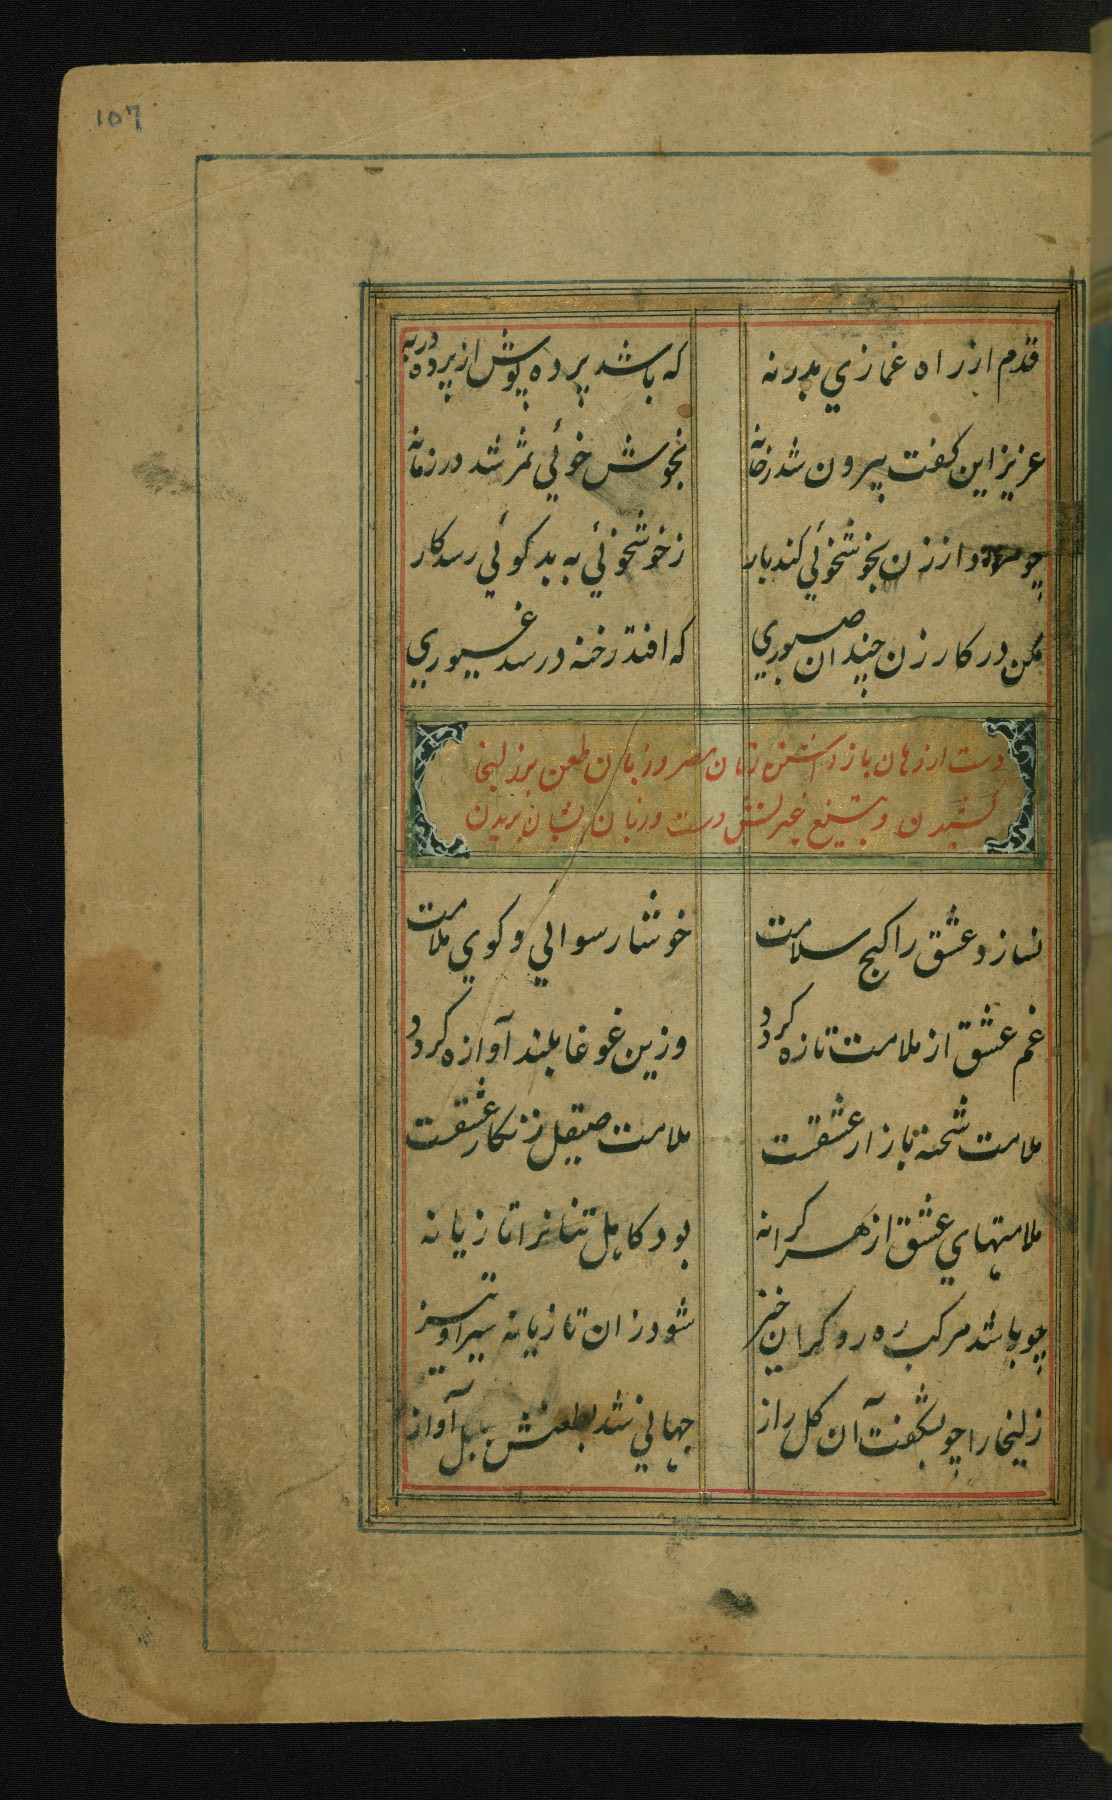 107
قدم از راه غمازي بدر نه که باشد پرده پوش از پرده در به
عزیز این کفت بیرون شد ز خانه بخوش خوئي ثمر شد در زمانه
چو مرد از زن بخوشخوئي کند بار ز خوشخوئي به بد کوئي رسد کار
مکن در کار زن چندان صبوري که افتد رخنه در سد غیوري
دست از زهان باز داشتن زنان مصر و زبان طعن بر زلیخا
کشیدن و بتیغ غیرتش دست و زبان ایشان بریدن
نسازد عشق را کنج سلامت خوشا رسوائي و کوي ملامت
غم عشق از ملامت تازه کردد وزین غوغا بلند آوازه کردد
ملامت شحنه بازار عشقست ملامت صیقل زنکار عشقست
ملامتهاي عشق از هر کرانه بود کاهل تنانرا تازیانه
چو باشد مرکب ره رو کران خیز شود زان تازیانه سیر او تیز
زلیخا را چو بشکفت آن کل راز جهاني شد بطعنش بلبل آواز